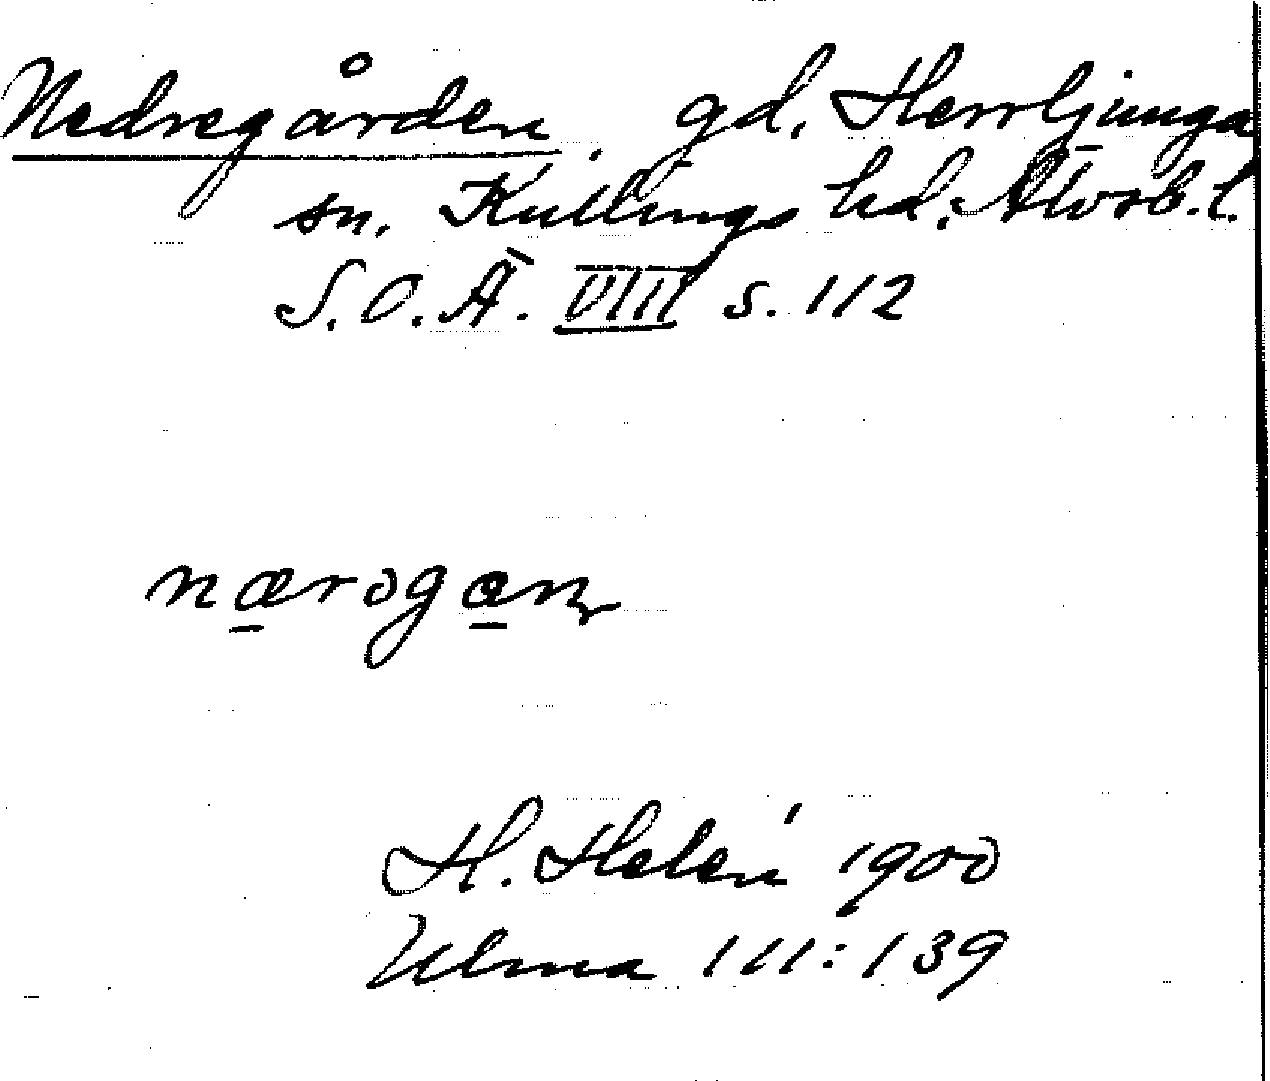 Nedregården. gd. Herrljunga
sn. Kullings hd. Älvsb.l.
S.O.Ä. VIII s. 112
nærogan
H. Helén 1900
Ulma 111:139